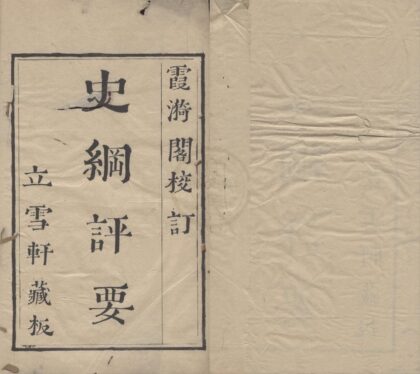 霞漪閣校訂
史綱評要
立雪軒藏板